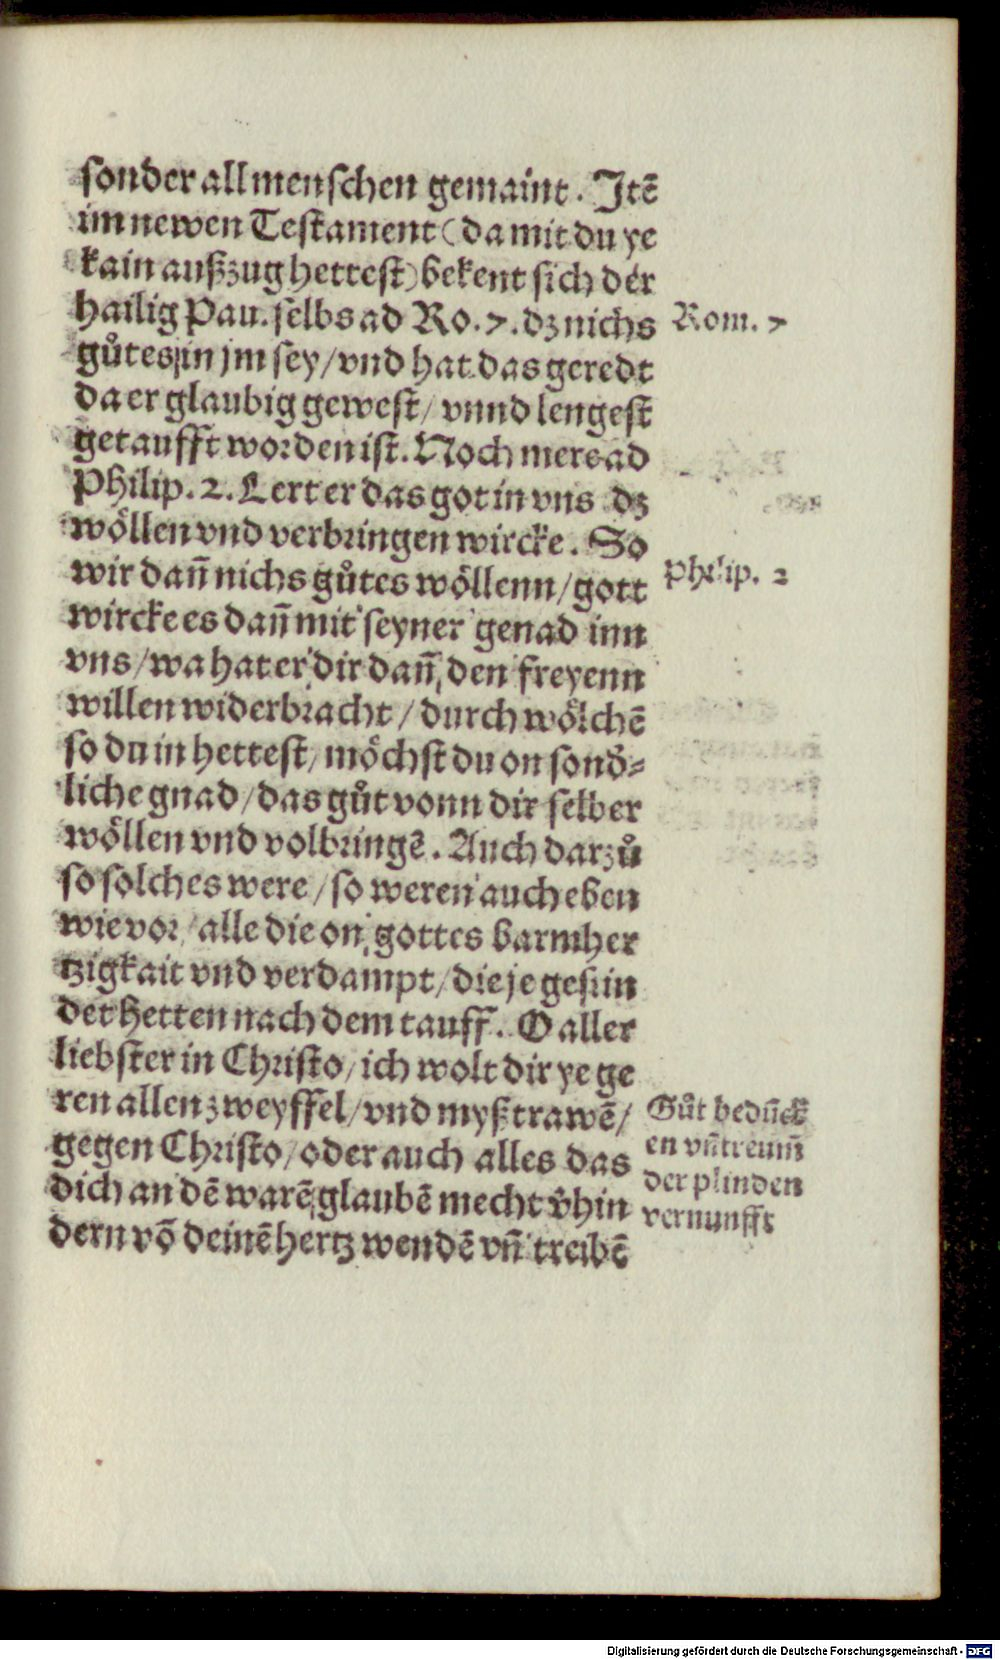 sonder all menschen gemaint. Itē
im newen Testament (da mit du ye
kain außzug hettest) bekent sich der
hailig Pau. selbs ad Ro. 7. dz nichs
gůtes in jm sey / vnd hat das geredt
da er glaubig gewest / vnnd lengest
getaufft worden ist. Noch mer ad
Philip. 2. Lert er das got in vns dz
wöllen vnd verbringen wircke. So
wir dañ nichs gůtes wöllenn / gott
wircke es dañ mit seyner genad inn
vns / wa hat er dir dañ den freyenn
willen widerbracht / durch wölchē
so du in hettest / möchst du on sond̕⸗
liche gnad / das gůt vonn dir selber
wöllen vnd volbringē. Auch darzů
so solches were / so weren auch eben
wie vor / alle die on gottes barmher
tzigkait vnd verdampt / die je gesün
det hetten nach dem tauff. O aller
liebster in Christo / ich wolt dir ye ge
ren allen zweyffel / vnd myßtrawē /
gegen Christo / oder auch alles das
dich an dē warē glaubē mecht v̕hin
dern vō deinē hertz wendē vñ treibē
Rom. 7
Philip. 2
Gůt bedūck
en vñ treum̄
der plinden
vernunfft
Digitalisierung gefördert durch die Deutsche Forschungsgemeinschaft - DFG